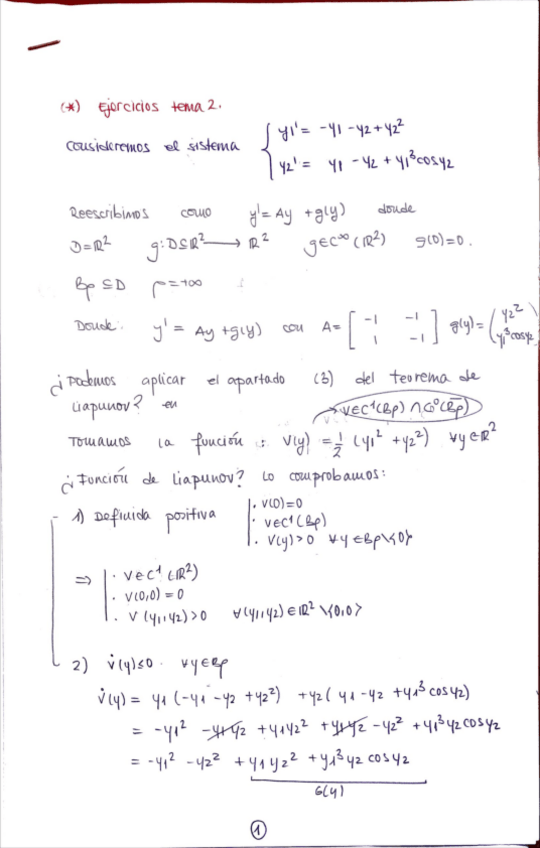 (*) Ejercicios tema 2.
Consideremos el sistema { y1' = -y1 - y2 + y2²
y2' = y1 - y2 + y1³ cos y2
Reescribimos como y' = Ay + g(y) donde
D=ℝ² g: D⊆ℝ² → ℝ² g∈C^∞(ℝ²) g(0)=0.
Bρ ⊆ D ρ=+∞
Donde: y' = Ay + g(y) con A = [ -1 -1 ; 1 -1 ] g(y) = ( y2² ; y1³ cos y2
¿Podemos aplicar el apartado (3) del teorema de
Liapunov? en → V∈C¹(Bρ) ∩ C⁰(B̄ρ)
Tomamos la función : V(y) = 1/2 (y1² + y2²) ∀y∈ℝ²
¿Función de Liapunov? Lo comprobamos:
1) Definida positiva | · V(0)=0
· V∈C¹(Bρ)
· V(y)>0 ∀y∈Bρ\{0}
⇒ | · V∈C¹(ℝ²)
· V(0,0) = 0
· V(y1,y2)>0 ∀(y1,y2)∈ℝ²\{0,0}
2) V̇(y)≤0 · ∀y∈Bρ
V̇(y) = y1 (-y1 - y2 + y2²) + y2 ( y1 - y2 + y1³ cos y2)
= -y1² - y1y2 + y1y2² + y1y2 - y2² + y1³y2 cos y2
= -y1² - y2² + y1y2² + y1³y2 cos y2
G(y)
1